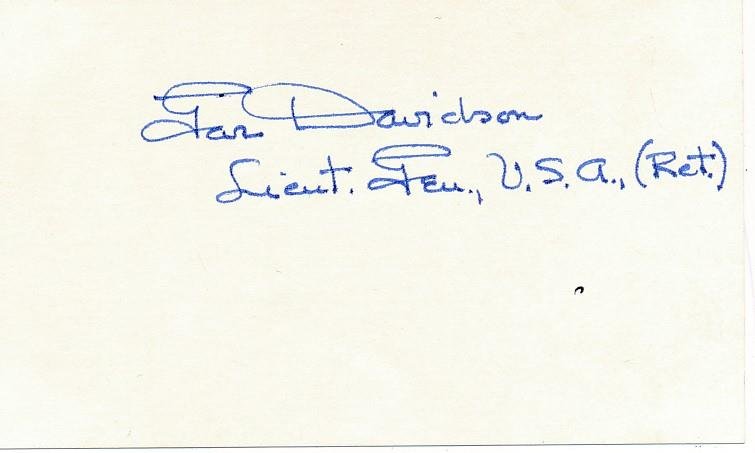 Gar Davidson
Lieut. Gen., U.S.A., (Ret.)